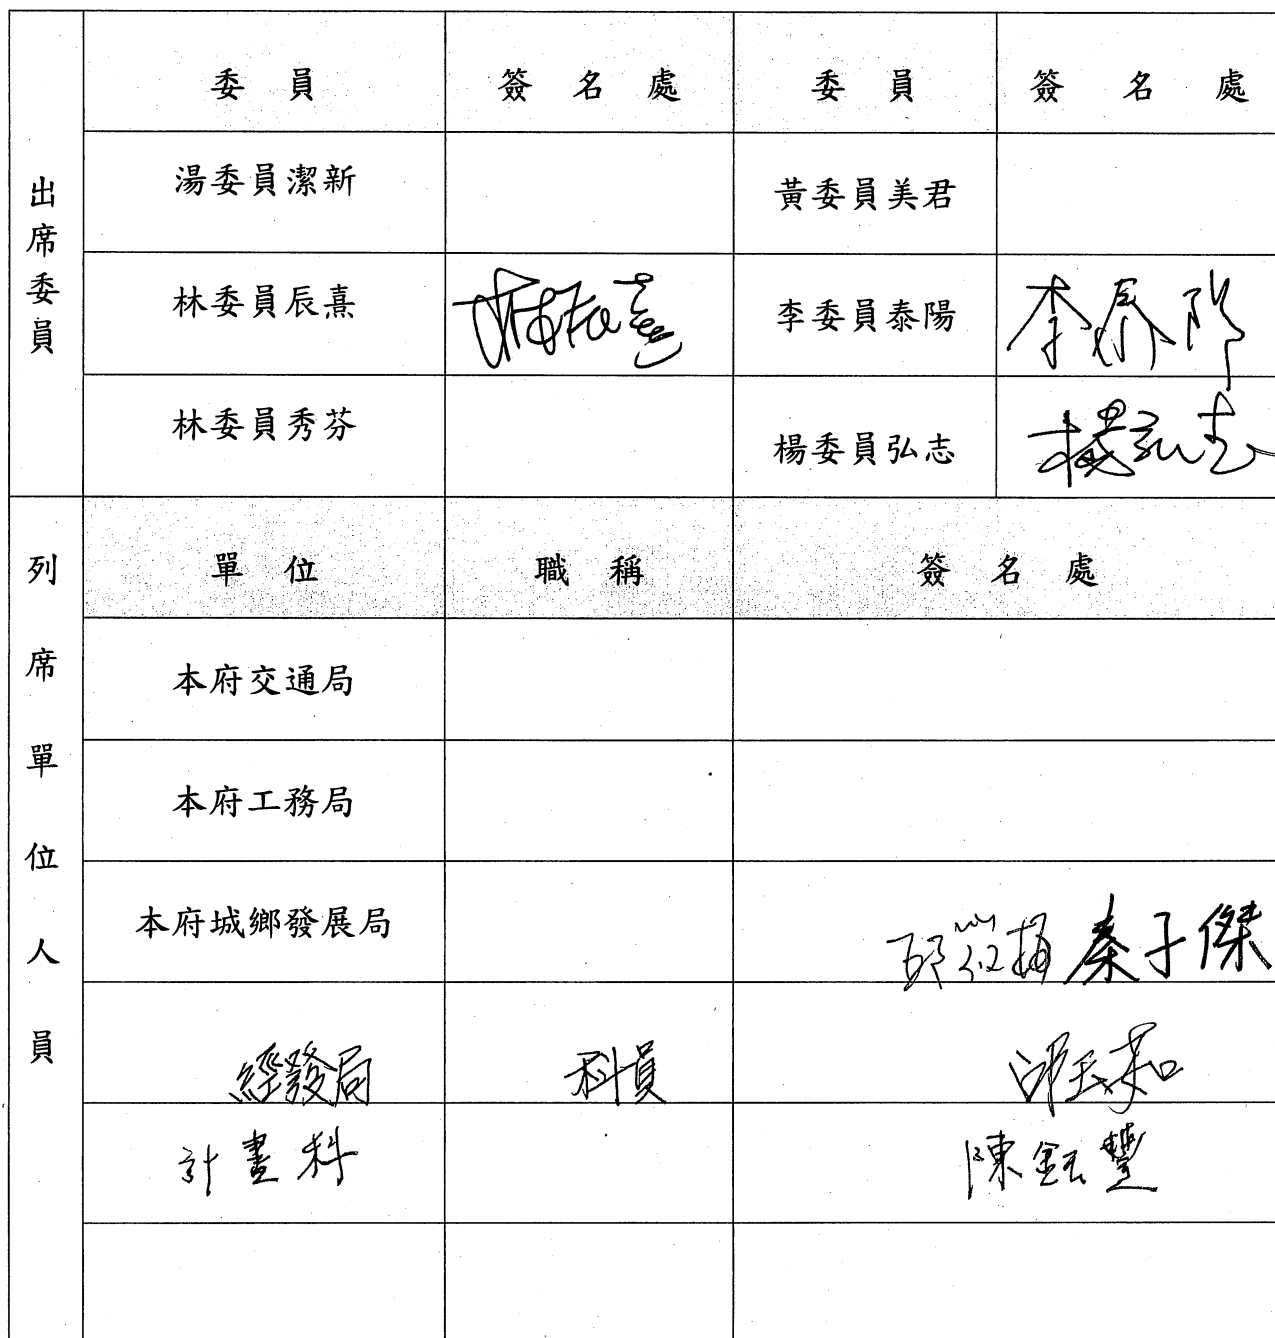 出席委員
委員 簽名處 委員 簽名處
湯委員潔新 黃委員美君
林委員辰熹 林辰熹 李委員泰陽 李泰陽
林委員秀芬 楊委員弘志 楊弘志
列席單位人員
單位 職稱 簽名處
本府交通局
本府工務局
本府城鄉發展局 秦子傑
經發局 科員
計畫科 陳鈺豐